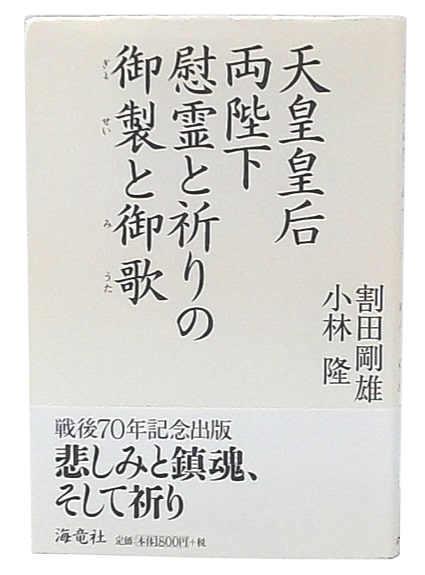 天皇皇后
両陛下
慰霊と祈りの
御製と御歌
ぎよ せい み うた
割田剛雄
小林 隆
戦後70年記念出版
悲しみと鎮魂、
そして祈り
海竜社 定価[本体1800円]+税